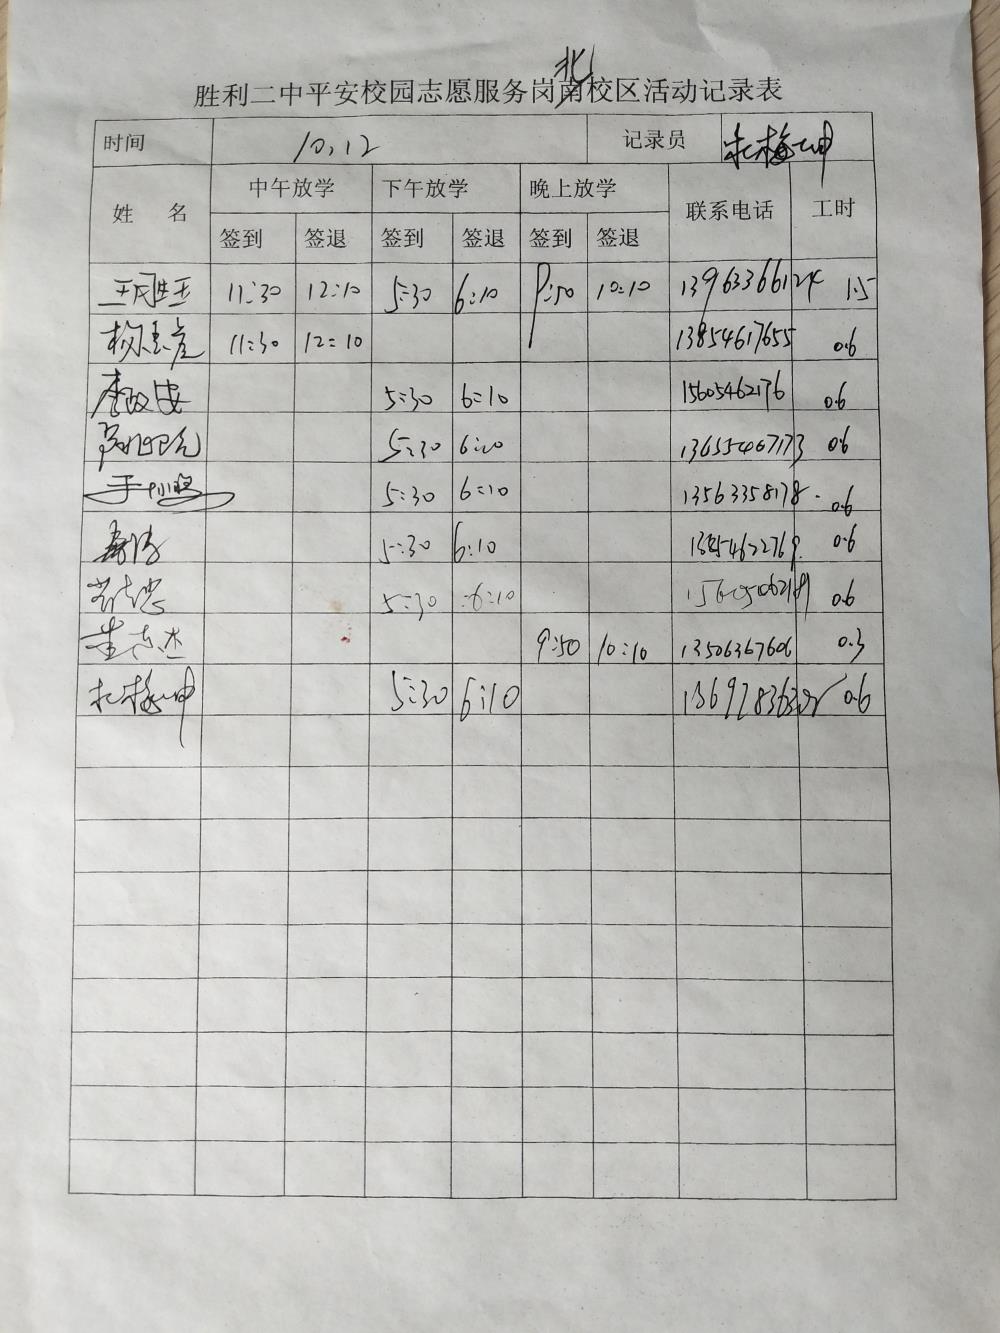 胜利二中平安校园志愿服务岗北校区活动记录表
时间 10.12 记录员 杜梅坤
姓 名 中午放学 下午放学 晚上放学 联系电话 工时
签到 签退 签到 签退 签到 签退
11:30 12:10 5:30 6:10 9:50 10:10 13963366124 1.5
11:30 12:10 13854617655 0.6
5:30 6:10 15605462176 0.6
5:30 6:10 13655467173 0.6
5:30 6:10 13563358178 0.6
5:30 6:10 0.6
5:30 6:10 0.6
9:50 10:10 13506367606 0.3
杜梅坤 5:30 6:10 0.6